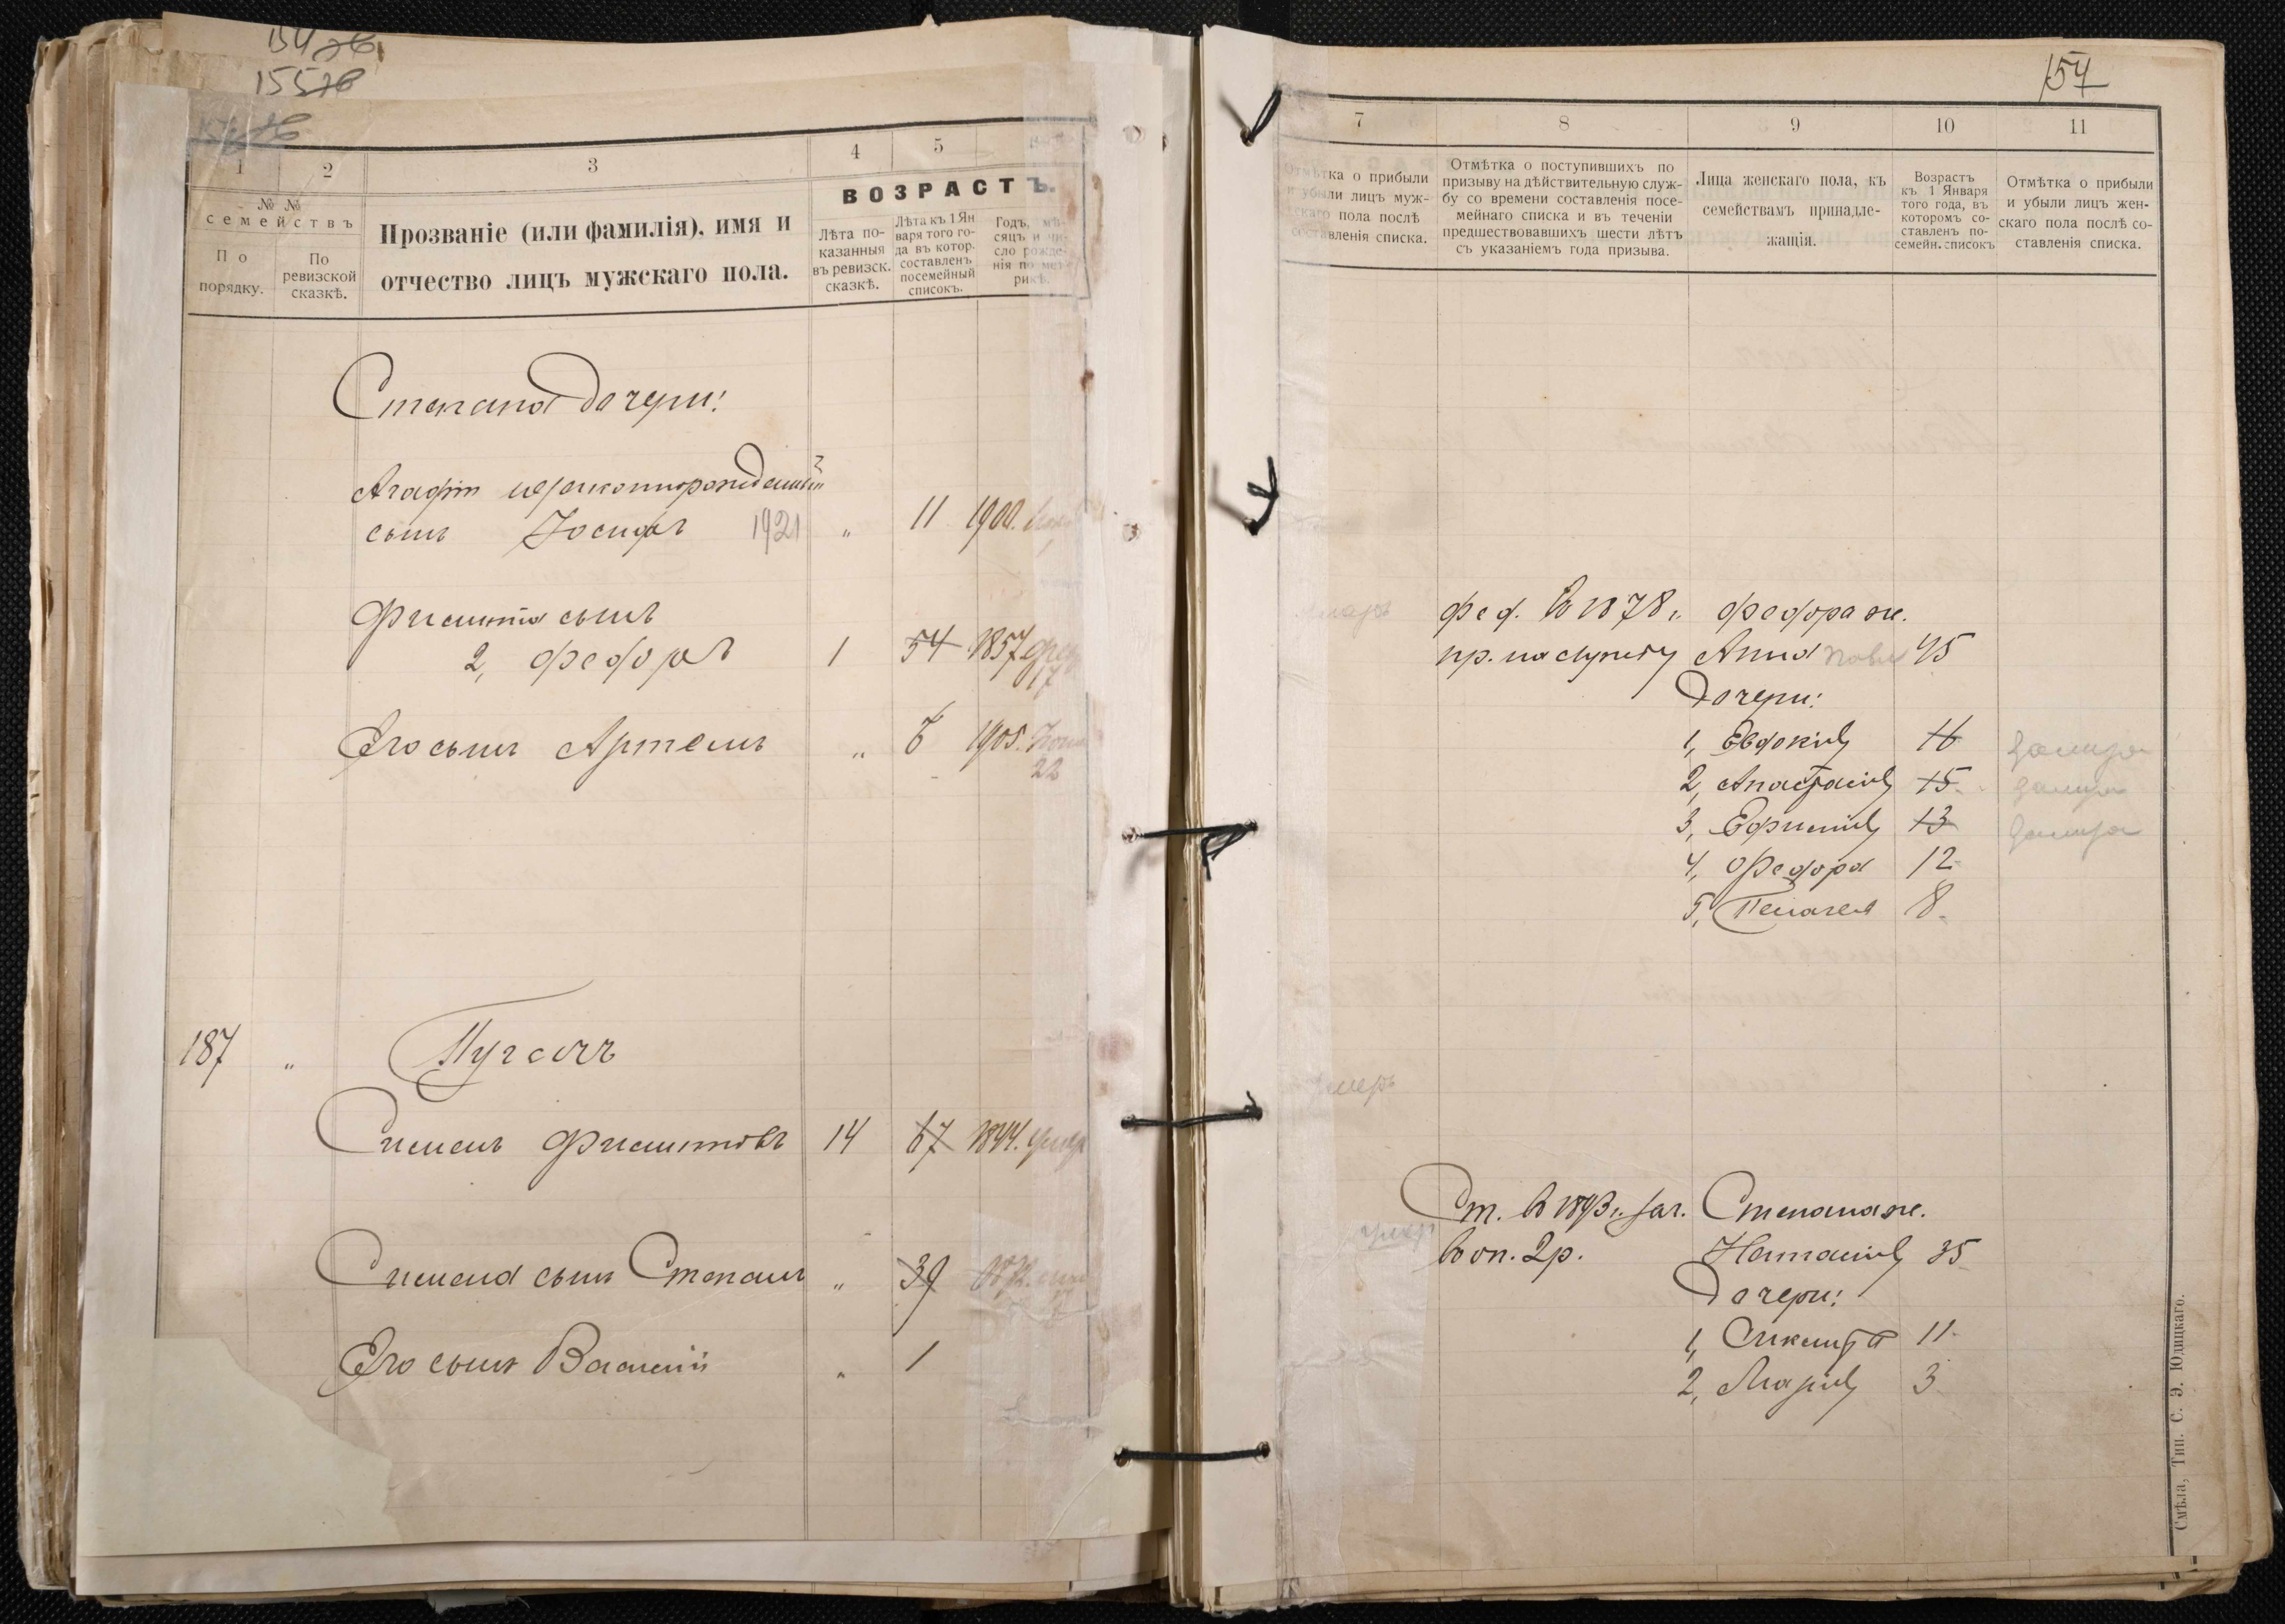 154
155
1
2
3
4
5
№ №
семействъ
По
порядку.
По
ревизской
сказкѣ.
Прозваніе (или фамилія), имя и
отчество лицъ мужскаго пола.
ВОЗРАСТЪ.
Лѣта по-
казанныя
въ ревизск.
сказкѣ.
Лѣта къ 1 Ян
варя того го-
да въ котор.
составленъ
посемейный
списокъ.
Годъ, мѣ-
сяцъ и чи-
сло рожде-
нія по мет-
рикѣ.
Степана дочери:
Агафіи незаконнорожденный
сынъ Іосифъ 1921 " 11 1900.
Филиппа сынъ
2, Федоръ 1 54 1857 фев
17
Его сынъ Артемъ " 6 1905.
22
187 " Пугачъ
Симеонъ Филипповъ 14 67 1844. умер
Симеона сынъ Степанъ " 39
Его сынъ Василій " 1
154
7
8
9
10
11
Отмѣтка о прибыли
и убыли лицъ муж-
скаго пола послѣ
составленія списка.
Отмѣтка о поступившихъ по
призыву на дѣйствительную служ-
бу со времени составленія посе-
мейнаго списка и въ теченіи
предшествовавшихъ шести лѣтъ
съ указаніемъ года призыва.
Лица женскаго пола, къ
семействамъ принадле-
жащія.
Возрастъ
къ 1 Января
того года, въ
которомъ со-
ставленъ по-
семейн. списокъ
Отмѣтка о прибыли
и убыли лицъ жен-
скаго пола послѣ со-
ставленія списка.
Фед. въ 1878 г. Федора ж.
пр. на службу Анна 45
Дочери:
1, Евдокія 16 замуж
2, Анастасія 15 замуж
3, Ефимія 13 замуж
4, Федора 12
5, Пелагея 8
умеръ
Ст. въ 1893 г. зач. Степана ж.
въ оп. 2 р. Наталія 35
умеръ
Дочери:
1, 11
2, Марія 3
Смѣла, Тип. С. Э. Юдицкаго.